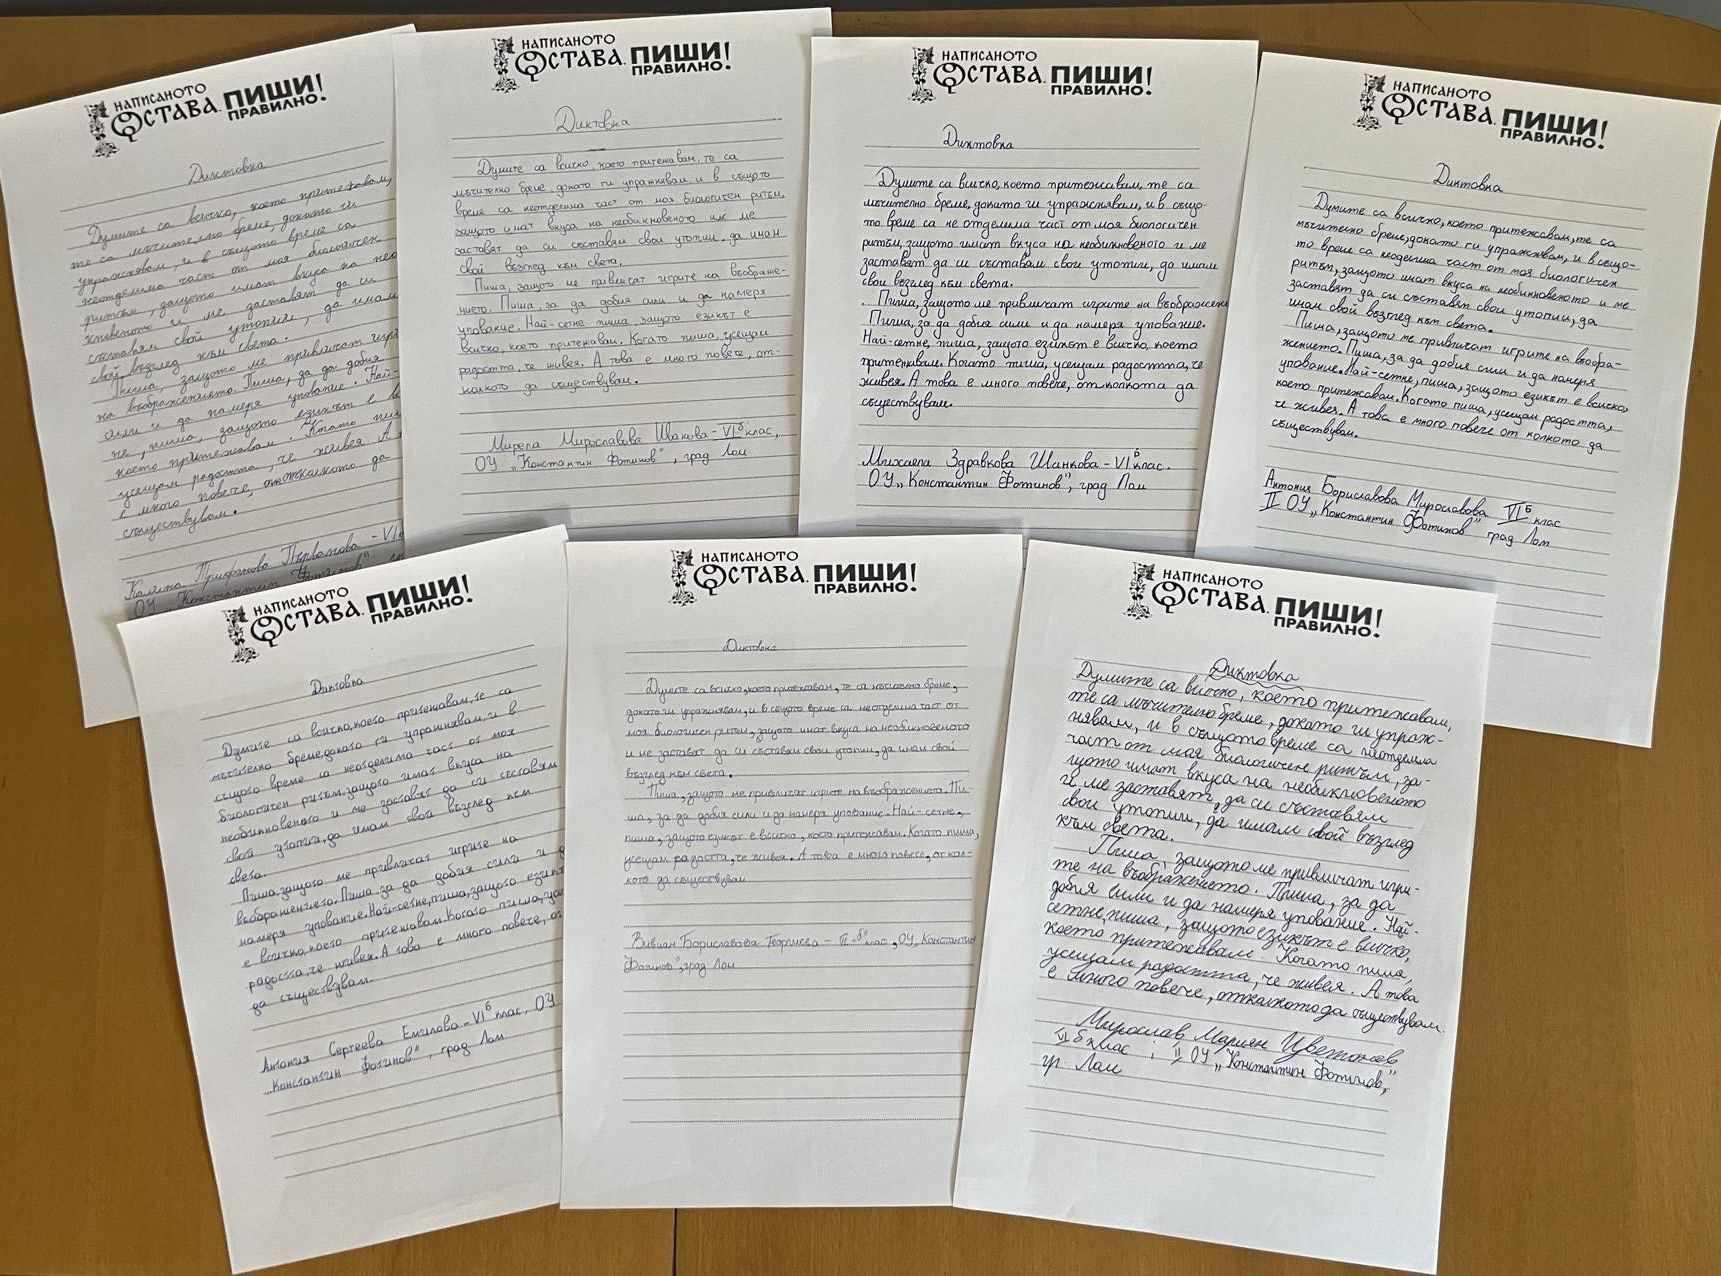 НАПИСАНОТО
ОСТАВА. ПИШИ
ПРАВИЛНО!
Диктовка
Думите са всичко, което притежавам,
те са мъчително бреме, докато ги
упражнявам, и в същото време са
неотделима част от моя биологичен
ритъм, защото имат вкуса на необ
икновеното и ме заставят да си
съставям свой утопии, да имам
свой възглед към света.
Пиша, защото ме привличат игри
на въображението. Пиша, за да добия
сили и да намеря упование. Най-
не, пиша, защото езикът е
което притежавам. Когато пиш
усещам радостта, че живея. А
е много повече, отколкото да
съществувам.
Калина Трифонова Първанова - VI
ОУ „Константин Фотинов"
НАПИСАНОТО
ОСТАВА. ПИШИ!
ПРАВИЛНО!
Диктовка
Думите са всичко, което притежавам, те са
мъчително бреме, докато ги упражнявам и в същото
време са неотделима част от моя биологичен ритъм,
защото имат вкуса на необикновеното и ме
заставят да си съставям свои утопии, да имам
свой възглед към света.
Пиша, защото ме привличат игрите на въображе-
нието. Пиша, за да добия сили и да намеря
упование. Най-сетне пиша, защото езикът е
всичко, което притежавам. Когато пиша, усещам
радостта, че живея. А това е много повече, от-
колкото да съществувам.
Мирела Мирославова Иванова - VIб клас,
ОУ „Константин Фотинов", град Лом
НАПИСАНОТО
ОСТАВА. ПИШИ!
ПРАВИЛНО!
Диктовка
Думите са всичко, което притежавам, те са
мъчително бреме, докато ги упражнявам, и в също-
то време са не отделима част от моя биологичен
ритъм, защото имат вкуса на необикновеното и ме
заставят да си съставам свои утопии, да имам
свои възглед към света.
Пиша, защото ме привличат игрите на въображени
Пиша, за да добия сили и да намеря упование.
Най-сетне, пиша, защото езикът е всичко, което
притежавам. Когато пиша, усещам радостта, че
живея. А това е много повече, отколкото да
съществувам.
Михаела Здравкова Шанкова - VIб клас.
ОУ „Константин Фотинов", град Лом
НАПИСАНОТО
ОСТАВА. ПИШИ!
ПРАВИЛНО!
Диктовка
Думите са всичко, което притежавам, те са
мъчително бреме, докато ги упражнявам, и в също-
то време са неделима част от моя биологичен
ритъм, защото имат вкуса на необикновеното и ме
заставят да си съставят свои утопии, да
имам свой възглед към света.
Пиша, защото ме привличат игрите на въобра-
жението. Пиша, за да добия сили и да намеря
упование. Най-сетне, пиша, защото езикът е всичко
което притежавам. Когато пиша, усещам радостта,
че живея. А това е много повече от колкото да
съществувам.
Антония Бориславова Мирославова VIб клас
II ОУ „Константин Фотинов" град Лом
НАПИСАНОТО
ОСТАВА. ПИШИ!
ПРАВИЛНО!
Диктовка
Думите са всичко, което притежавам, те са
мъчително бреме, докато ги упражнявам, и в
същото време са неотделима част от моя
биологичен ритъм, защото имат вкуса на
необикновеното и ме заставят да си съставям
свой утопии, да имам свой възглед към
света.
Пиша, защото ме привличат игрите на
въображението. Пиша за да добия сили и
намеря упование. Най-сетне, пиша, защото език
е всичко, което притежавам. Когато пиша, усе
радостта, че живея. А това е много повече, от
да съществувам.
Антония Сергеева Емилова - VIб клас. ОУ
„Константин Фотинов", град Лом
НАПИСАНОТО
ОСТАВА. ПИШИ!
ПРАВИЛНО!
Диктовка
Думите са всичко, което притежавам, те са мъчително бреме,
докато ги упражнявам, и в същото време са неотделима част от
моя биологичен ритъм, защото имат вкуса на необикновеното
и ме заставят да си съставям свои утопии, да имам свой
възглед към света.
Пиша, защото ме привличат игрите на въображението. Пи-
ша, за да добия сили и да намеря упование. Най-сетне,
пиша, защото езикът е всичко, което притежавам. Когато пиша,
усещам радостта, че живея. А това е много повече, откол-
кото да съществувам
Вивиан Бориславова Георгиева - VI "б" клас, ОУ „Константин
Фотинов", град Лом
НАПИСАНОТО
ОСТАВА. ПИШИ!
ПРАВИЛНО!
Диктовка
Думите са всичко, което притежавам,
те са мъчително бреме, докато ги упраж-
нявам, и в същото време са неотделима
част от моя биологичен ритъм, за-
щото имат вкуса на необикновеното
и ме заставят, да си съставям
свои утопии, да имам свой възглед
към света.
Пиша, защото ме привличат игри-
те на въображението. Пиша, за да
добия сили и да намеря упование. Най-
сетне, пиша, защото езикът е всичко,
което притежавам. Когато пиша,
усещам радостта, че живея. А това
е много повече, отколкото да съществувам.
Мирослав Мариян Цветанов
VI б клас, II ОУ „Константин Фотинов",
гр Лом